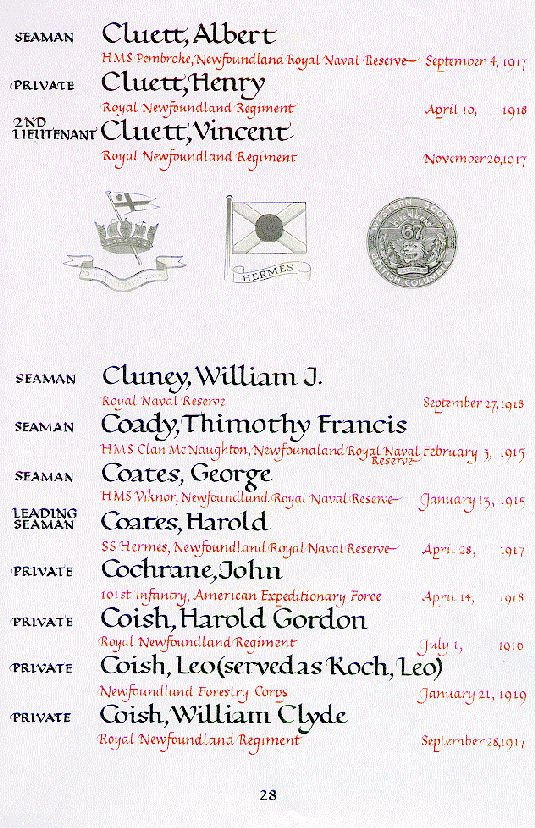 SEAMAN Cluett, Albert
HMS Pembroke, Newfoundland Royal Naval Reserve September 4, 1917
PRIVATE Cluett, Henry
Royal Newfoundland Regiment April 10, 1918
2ND LIEUTENANT Cluett, Vincent
Royal Newfoundland Regiment November 20, 1917
HERMES
87
BRITISH COLUMBIA
SEAMAN Cluney, William J.
Royal Naval Reserve September 27, 1918
SEAMAN Coady, Thimothy Francis
HMS Clan McNaughton, Newfoundland Royal Naval Reserve February 3, 1915
SEAMAN Coates, George
HMS Viknor, Newfoundland Royal Naval Reserve January 13, 1915
LEADING SEAMAN Coates, Harold
SS Hermes, Newfoundland Royal Naval Reserve April 28, 1917
PRIVATE Cochrane, John
101st Infantry, American Expeditionary Force April 14, 1918
PRIVATE Coish, Harold Gordon
Royal Newfoundland Regiment July 1, 1916
PRIVATE Coish, Leo (served as Koch, Leo)
Newfoundland Forestry Corps January 21, 1919
PRIVATE Coish, William Clyde
Royal Newfoundland Regiment September 28, 1917
28